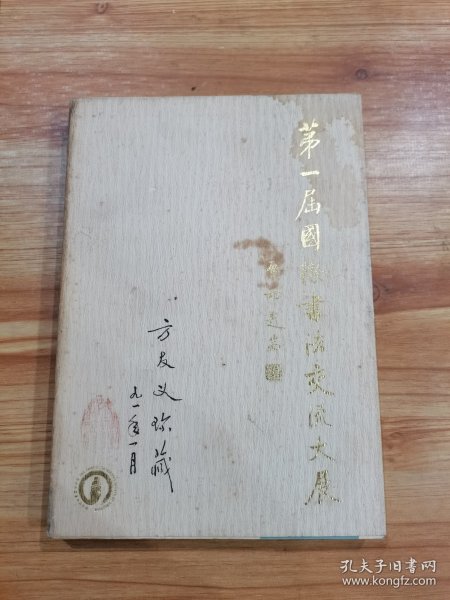 第一届國際書法交流大展
方友义珍藏
九一年一月
孔夫子旧书网
www.kongfz.com